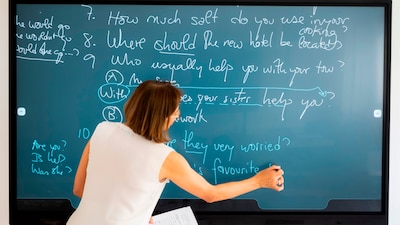 he would go
he wouldn't go
would she go?
7. How much salt do you use in your cooking?
8. Where should the new hotel be located?
9. Who usually help you with your
A My
With does your sister help you?
B work
10.
Are you?
Is he?
Was she?
they very worried?
's favourite